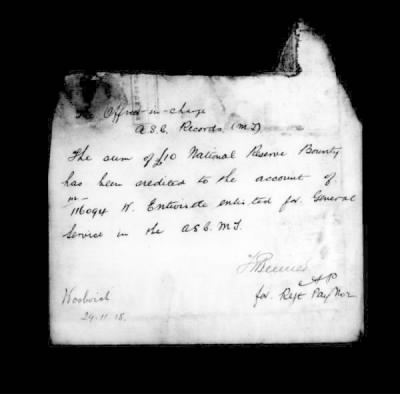 The Officer-in-charge
A.S.C. Records. (M.T)
The sum of £10 National Reserve Bounty
has been credited to the account of
M-
116094 W. Entwistle enlisted for General
Service in the A.S.C. M.T.
for Regt Paymr
Woolwich
29.11.15.